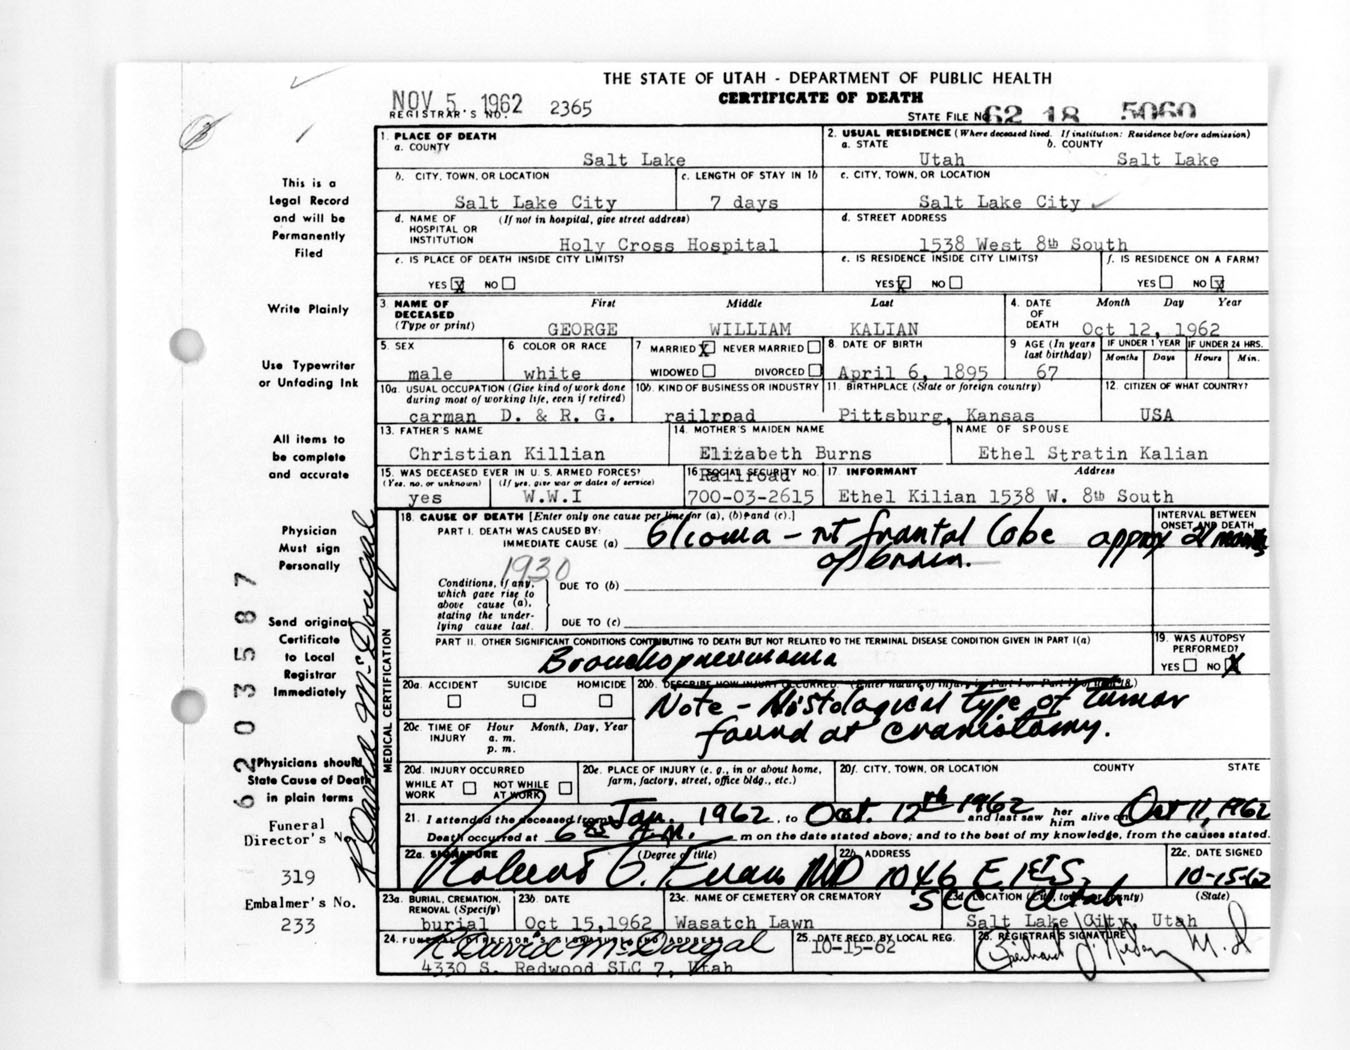 THE STATE OF UTAH - DEPARTMENT OF PUBLIC HEALTH
CERTIFICATE OF DEATH
NOV 5. 1962 2365
REGISTRAR'S NO.
STATE FILE NO. 62 18 5060
1. PLACE OF DEATH
a. COUNTY
Salt Lake
2. USUAL RESIDENCE (Where deceased lived. If institution: Residence before admission)
a. STATE b. COUNTY
Utah Salt Lake
b. CITY, TOWN, OR LOCATION
Salt Lake City
c. LENGTH OF STAY IN 1b
7 days
c. CITY, TOWN, OR LOCATION
Salt Lake City
d. NAME OF HOSPITAL OR INSTITUTION (If not in hospital, give street address)
Holy Cross Hospital
d. STREET ADDRESS
1538 West 8th South
e. IS PLACE OF DEATH INSIDE CITY LIMITS?
YES X NO
e. IS RESIDENCE INSIDE CITY LIMITS?
YES X NO
f. IS RESIDENCE ON A FARM?
YES NO X
3. NAME OF DECEASED (Type or print) First Middle Last
GEORGE WILLIAM KALIAN
4. DATE OF DEATH Month Day Year
Oct 12, 1962
5. SEX
male
6 COLOR OR RACE
white
7 MARRIED X NEVER MARRIED
WIDOWED DIVORCED
8. DATE OF BIRTH
April 6, 1895
9 AGE (In years last birthday)
67
IF UNDER 1 YEAR IF UNDER 24 HRS.
Months Days Hours Min.
10a. USUAL OCCUPATION (Give kind of work done during most of working life, even if retired)
carman D. & R. G.
10b. KIND OF BUSINESS OR INDUSTRY
railroad
11. BIRTHPLACE (State or foreign country)
Pittsburg, Kansas
12. CITIZEN OF WHAT COUNTRY?
USA
13. FATHER'S NAME
Christian Killian
14. MOTHER'S MAIDEN NAME
Elizabeth Burns
NAME OF SPOUSE
Ethel Stratin Kalian
15. WAS DECEASED EVER IN U. S. ARMED FORCES?
(Yes, no, or unknown) (If yes, give war or dates of service)
yes W.W.I
16 SOCIAL SECURITY NO.
Railroad
700-03-2615
17. INFORMANT Address
Ethel Kilian 1538 W. 8th South
MEDICAL CERTIFICATION
18. CAUSE OF DEATH [Enter only one cause per line for (a), (b) and (c).]
PART I. DEATH WAS CAUSED BY:
IMMEDIATE CAUSE (a) Glioma - rt frontal lobe
of brain.
INTERVAL BETWEEN ONSET AND DEATH
approx 21 months
1930
Conditions, if any, which gave rise to above cause (a), stating the underlying cause last.
DUE TO (b)
DUE TO (c)
PART II. OTHER SIGNIFICANT CONDITIONS CONTRIBUTING TO DEATH BUT NOT RELATED TO THE TERMINAL DISEASE CONDITION GIVEN IN PART I(a)
Bronchopneumonia
19. WAS AUTOPSY PERFORMED?
YES NO X
20a. ACCIDENT SUICIDE HOMICIDE
20b. DESCRIBE HOW INJURY OCCURRED. (Enter nature of injury in Part I or Part II of item 18.)
Note - Histological type of tumor
found at craniotomy.
20c. TIME OF INJURY Hour Month, Day, Year
a. m.
p. m.
20d. INJURY OCCURRED
WHILE AT WORK NOT WHILE AT WORK
20e. PLACE OF INJURY (e. g., in or about home, farm, factory, street, office bldg., etc.)
20f. CITY, TOWN, OR LOCATION COUNTY STATE
21. I attended the deceased from Jan. 1962, to Oct. 12th 1962 and last saw her him alive on Oct 11, 1962
Death occurred at 6 A.M. m on the date stated above; and to the best of my knowledge, from the causes stated.
22a. SIGNATURE (Degree or title)
MD
22b. ADDRESS
1046 E. 1st S.
SLC Utah
22c. DATE SIGNED
10-15-62
23a. BURIAL, CREMATION, REMOVAL (Specify)
burial
23b. DATE
Oct 15, 1962
23c. NAME OF CEMETERY OR CREMATORY
Wasatch Lawn
23d. LOCATION (City, town, or county) (State)
Salt Lake City, Utah
24. FUNERAL DIRECTOR'S SIGNATURE AND ADDRESS
R David McDougal
4330 S. Redwood SLC 7, Utah
25. DATE RECD. BY LOCAL REG.
10-15-62
26. REGISTRAR'S SIGNATURE
M. D
This is a
Legal Record
and will be
Permanently
Filed
Write Plainly
Use Typewriter
or Unfading Ink
All items to
be complete
and accurate
Physician
Must sign
Personally
Send original
Certificate
to Local
Registrar
Immediately
Physicians should
State Cause of Death
in plain terms
Funeral
Director's No.
319
Embalmer's No.
233
62035587
R David McDougal